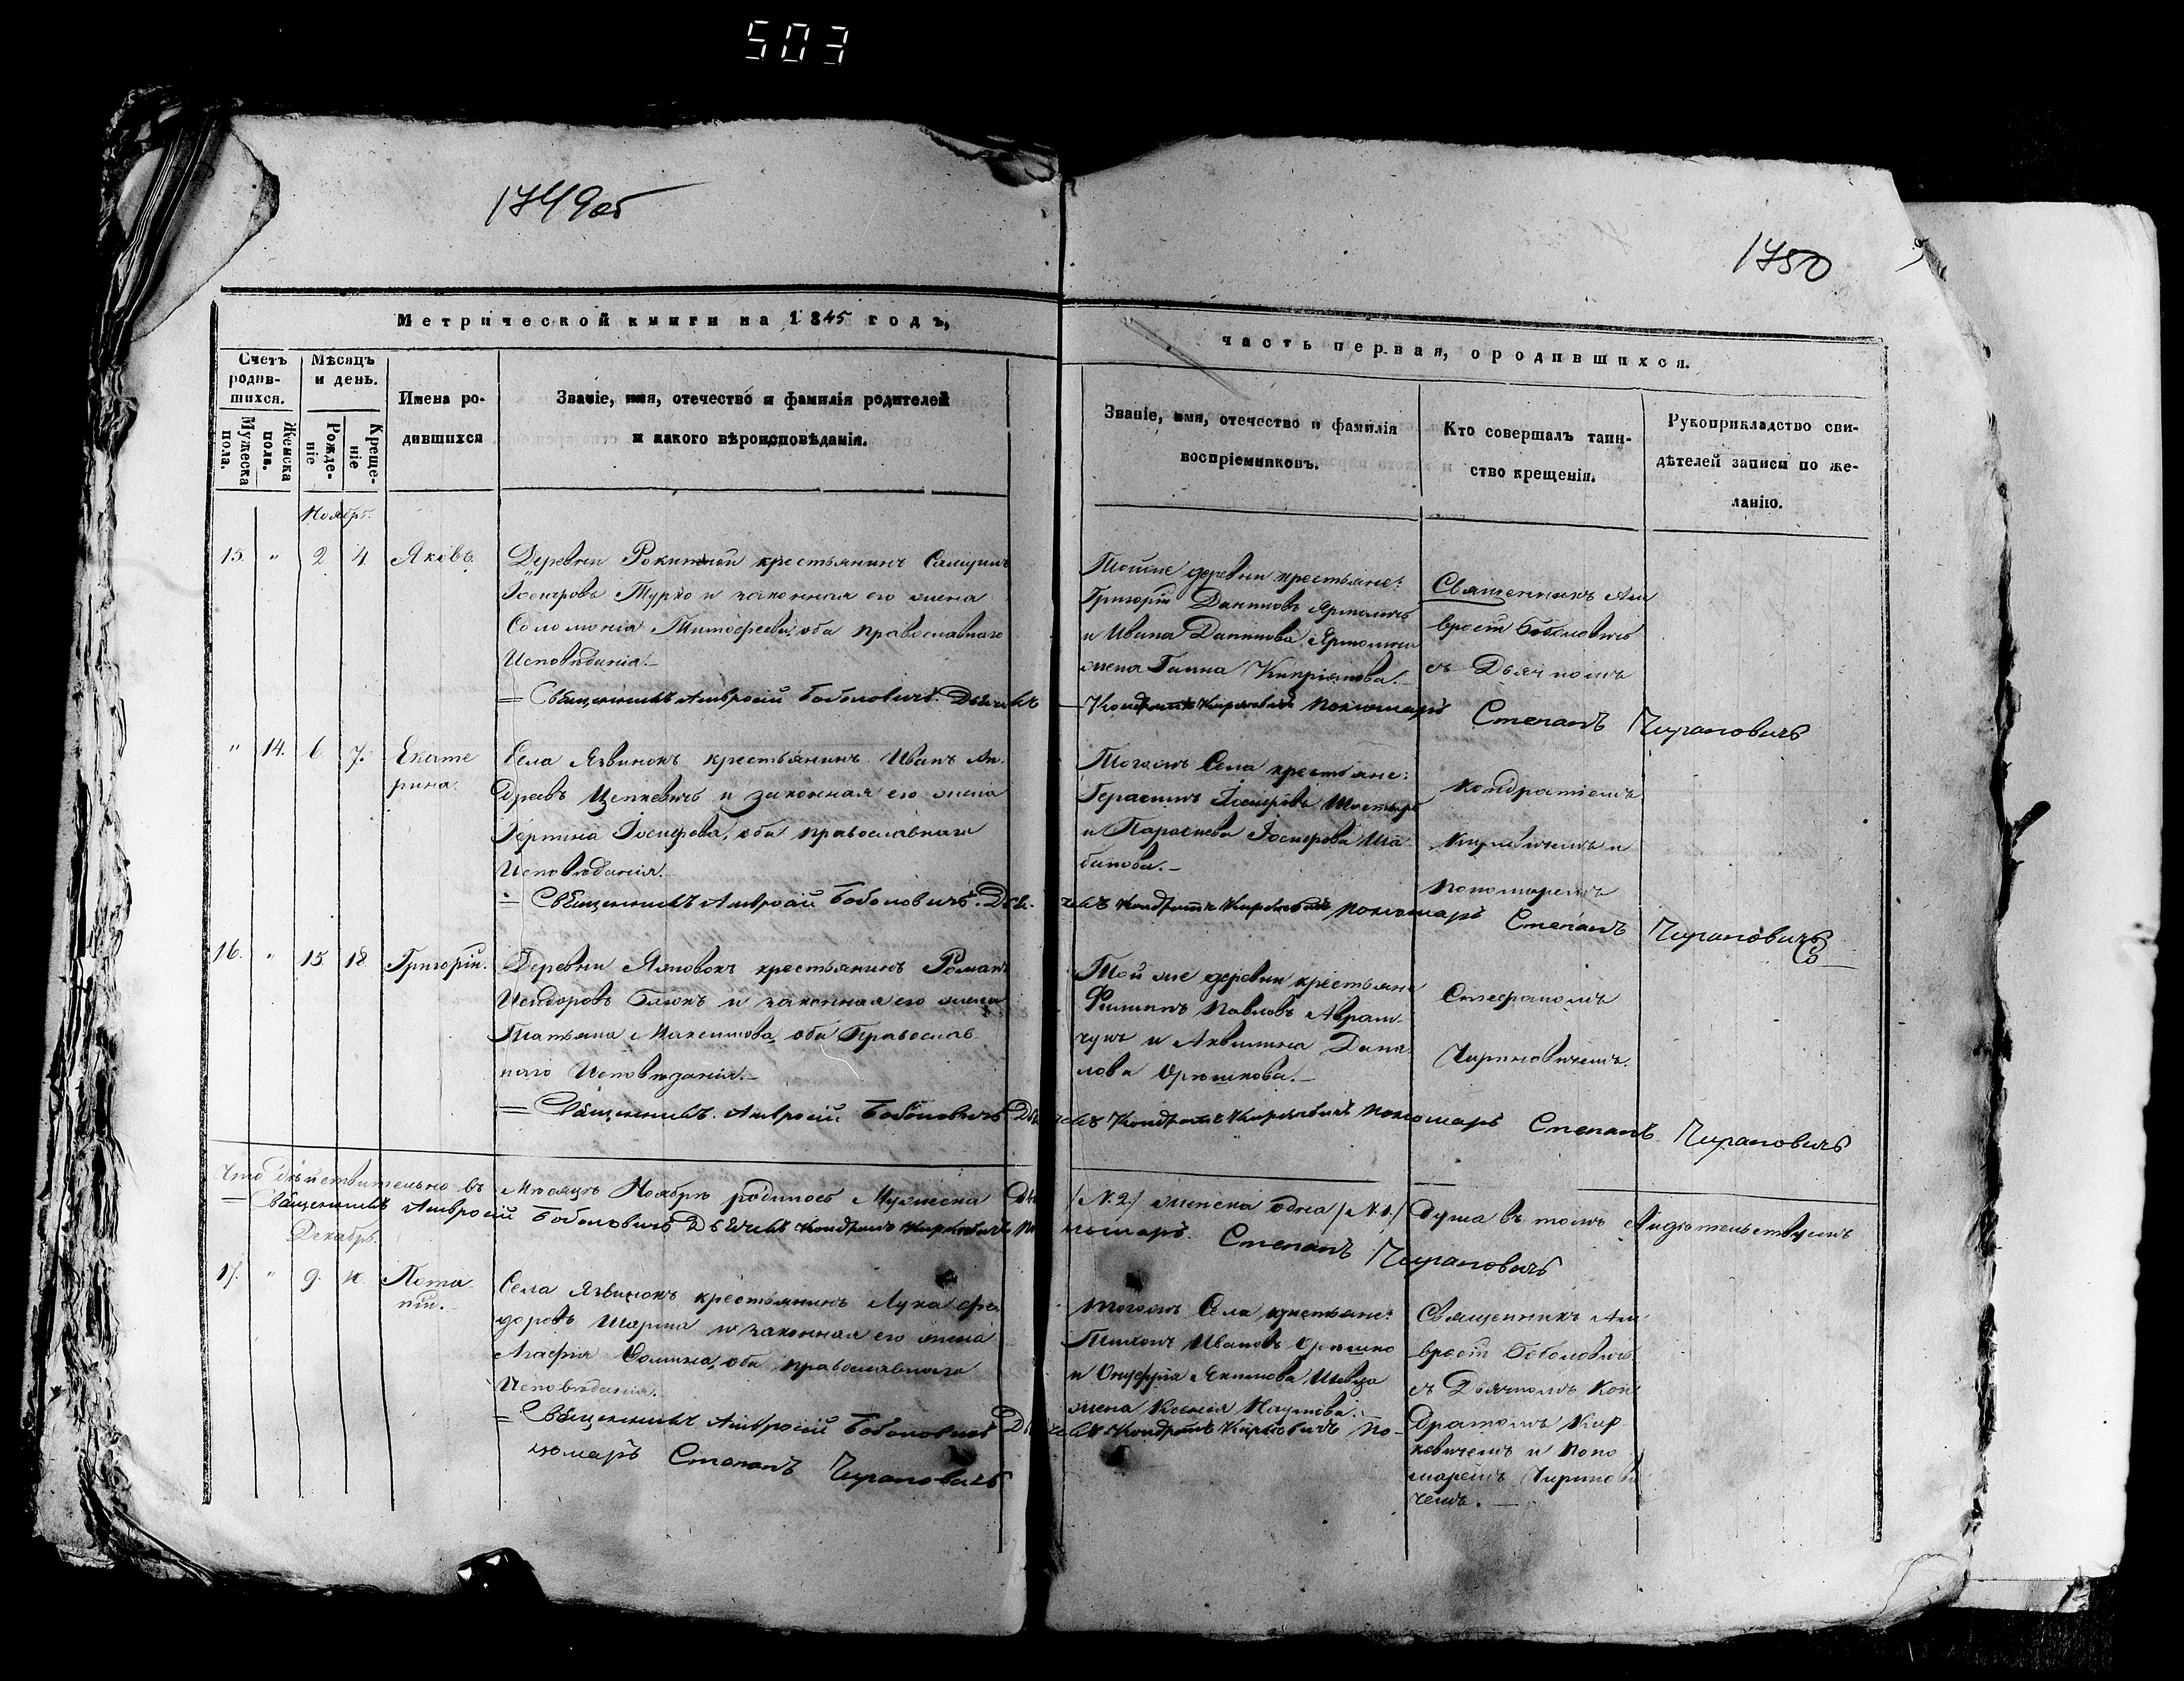 503
1749об
1750
Метрической книги на 1845 годъ,
часть первая, о родившихся.
Счетъ родив-шихся.
Мужеска пола.
Женска пола.
Мѣсяцъ и день.
Рожде-ніе
Креще-ніе
Имена ро-
дившихся
Званіе, имя, отечество и фамилія родителей
и какого вѣроисповѣданія.
Званіе, имя, отечество и фамилія
воспріемниковъ.
Кто совершалъ таин-
ство крещенія.
Рукоприкладство сви-
дѣтелей записи по же-
ланію.
Ноябрь.
15. " 2 4. Яковъ.
Деревни крестьянинъ
Іосифовъ Турко и законная его жена
Соломонія Тимофеева, оба православнаго
Исповѣданія.—
= Священникъ Амвросій Боболовичъ. Дьячекъ
Тойже деревни крестьяне:
Григорій Даниловъ
и Ивана Данилова
жена Ганна Кипріянова.—
Кондратъ Киркевичъ Пономарь Степанъ Чирановичъ
Священникъ Ам
вросій Боболовичъ
съ Дьячкомъ
" 14. 6. 7. Екате
рина.
Села Язвинокъ крестьянинъ Иванъ Ан.
дреевъ Цепкевичъ и законная его жена
Іосифова, оба православнаго
Исповѣданія.—
= Священникъ Амвросій Боболовичъ. Дья-
Тогожъ Села крестьяне:
Герасимъ Іосифовъ
и Параскева Іосифова Ша
банова.—
чекъ Кондратъ Киркевичъ Пономарь Степанъ Чирановичъ
Кондратіемъ
Киркевичемъ и
Пономаремъ
16. " 15. 18. Григорій.
Деревни крестьянинъ Романъ
Исидоровъ и законная его жена
Татьяна Максимова, оба Православ
наго Исповѣданія.—
= Священникъ Амвросій Боболовичъ Дья
Той же деревни крестьяне
Филиппъ Павловъ Аврам-
чукъ и Акилина Дани
лова Орѣшкова.—
чекъ Кондратъ Киркевичъ Пономарь Степанъ Чирановичъ
Стефаномъ
Чириновичемъ.
Что дѣйствительно въ Мѣсяцѣ Ноябрѣ родилось Мужеска Двѣ /N. 2./ женска одна /N. 1./ душа въ томъ свидѣтельствуемъ
= Священникъ Амвросій Боболовичъ Дьячекъ Кондратъ Киркевичъ По
номарь. Степанъ Чирановичъ
Декабрь.
17. " 9. 10. Пота
пій.—
Села Язвинокъ крестьянинъ Лука Фе
доровъ и законная его жена
Агафія Фомина, оба православнаго
Исповѣданія.—
= Священникъ Амвросій Боболовичъ Дья
номарь Степанъ Чирановичъ
Тогожъ Села крестьяне:
Тихонъ Ивановъ Орѣшко
и Онуфрія Якимова Шевца
жена Ксенія Наумова.—
чекъ Кондратъ Киркевичъ По-
Священникъ Ам
вросій Боболовичъ
съ Дьячкомъ Кон
дратомъ Кир
кевичемъ и Поно
маремъ Чиринови
чемъ.—